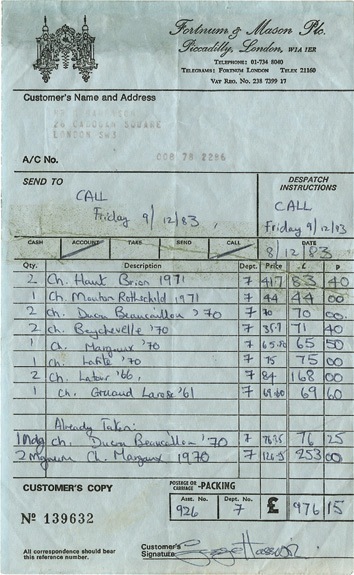 Fortnum & Mason Plc.
Piccadilly, London, W1A 1ER
TELEPHONE: 01-734 8040
TELEGRAMS: FORTNUM LONDON TELEX 21160
VAT REG. NO. 238 7399 17
Customer's Name and Address
26 CADOGAN SQUARE
LONDON SW1
A/C No. 008 78 2286
SEND TO
CALL
Friday 9/12/83,
DESPATCH INSTRUCTIONS
CALL
Friday 9/12/83
CASH ACCOUNT TAKE SEND CALL DATE
8/12/83
Qty. Description Dept. Price £ p
2 Ch. Haut Brion 1971 7 83 40
1 Ch. Mouton Rothschild 1971 7 44 44 00
2 Ch. Ducru Beaucaillou '70 7 70 00
2 Ch. Beychevelle '70 7 35.7 71 40
1 Ch. Margaux '70 7 65.50 65 50
1 Ch. Lafite '70 7 75 75 00
2 Ch. Latour '66, 7 84 168 00
1 Ch. Gruaud Larose '61 7 69.60 69 60
Already Taken:
1 Ch. Ducru Beaucaillou '70 7 76.25 76 25
2 Magnum Ch. Margaux 1970 7 126.5 253 00
CUSTOMER'S COPY
POSTAGE OR CARRIAGE -PACKING
Asst. No. 926
Dept. No. 7
£ 976 15
No 139632
All correspondence should bear this reference number.
Customer's Signature